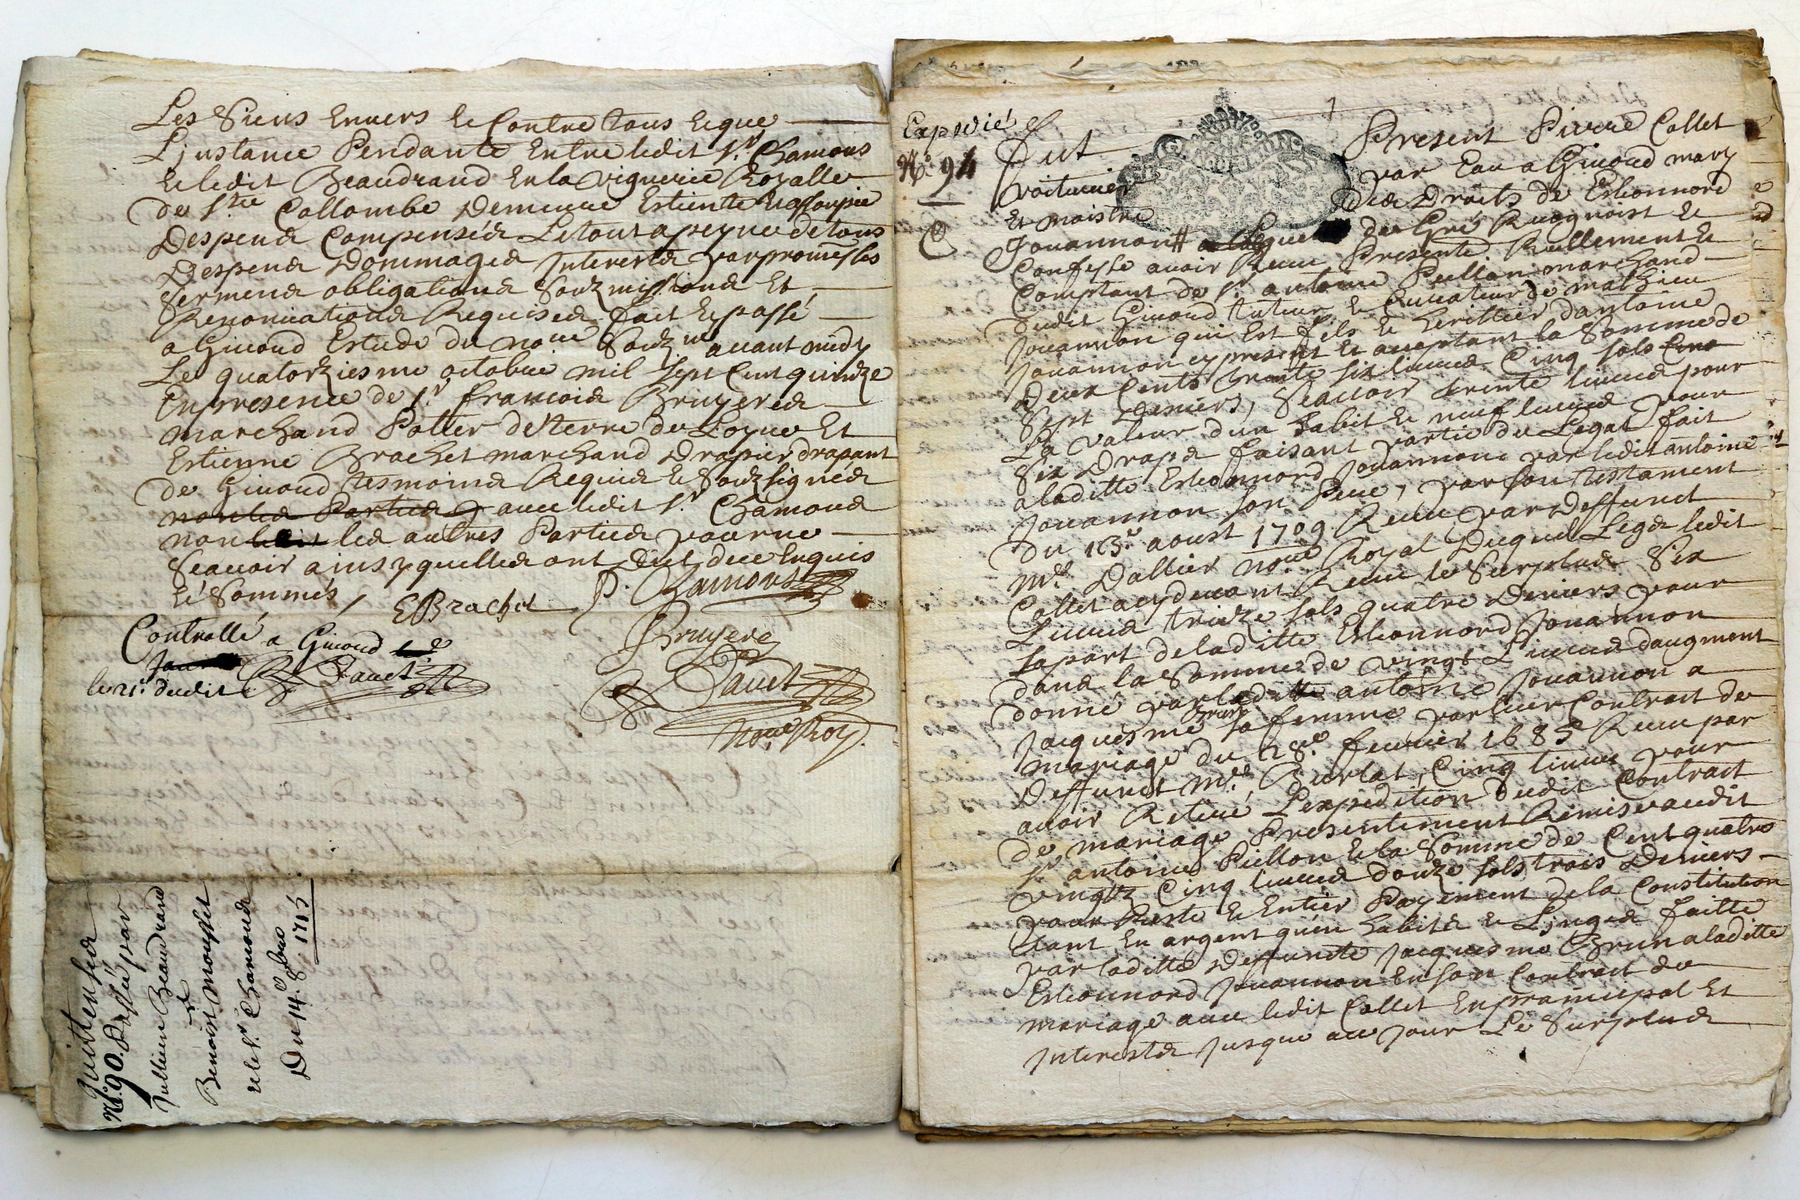 Les Siens Envers Et Contre tous Et que
L'instance Pendante Entre ledit Sr. Chamous
Et ledit Beaudrand En la viguerie Royalle
de Ste Collombe Demeure Esteinte Et assoupie
Despend Compensés Le tout a peyne de tous
Despend Dommages Interests par promesses
Serments obligations Soubzmissions Et
Renonciations Requises fait Et passé
a Givord Estude du nore Soubzné avant midy
Le quatorziesme octobre mil Sept Cent quinze
En presence de Sr. francois Bruyere
marchand Potier de terre de Et
Estienne Brachet marchand Drapier drapant
de Givord tesmoins Requis Et Soubsignés
avec ledit Sr. Chamous
non les autres Parties pour ne
Scavoir ainsy quelles ont dit de ce Enquis
Et Sommés
EBrachet P. Chamous
Bruyere
Controllé a Givord le
le 21e dudit
nore Roy.
Quittance
No. 90. passée par
Jullien Beaudrand
Benoist
et le Sr. Chamous
Du 14e 8bre 1715
Expedié
No. 94
Fut Present Pierre Collet
voiturier par Eau a Givord mary
Et maistre des Droits de Estiennord
Jouannon de Gré Recognoist Et
Confesse avoir Receu Presentement Reellement Et
Comptant de Sr. antoine Pullon marchand
dudit Givord tuteur Et Curateur de mathieu
Jouannon qui Est fils Et heritier d'antoine
Jouannon cy present Et acceptant la Somme de
Deux Cents trente Six livres Cinq Sols
Sept Deniers, Scavoir trente livres pour
La valeur d'un habit Et neuf livres pour
Six Draps faisant partie du Legat fait
a laditte Estiennord Jouannon par ledit antoine
Jouannon Son Pere, par Son testament
Du 163e aoust 1709 Receu par Deffunct
Me. Dallier nore Royal Duquel Legat ledit
Collet a cy devant Receu le Surplus Six
Livres treize Sols quatre Deniers pour
La part de laditte Estiennord Jouannon
dans la Somme de vingt Livres d'augment
donné par ledit antoine Jouannon a
Jacquesme Brun Sa femme par leur Contract de
mariage du 28e. fevrier 1685 Receu par
Deffunct Me. Burlat, Cinq livres pour
avoir Retiré L'expedition dudit Contract
de mariage Presentement Remise audit
Sr antoine Pullon Et la Somme de Cent quatre
vingtz Cinq livres douze Sols trois Deniers
pour Reste Et Entier Payement de la Constitution
tant En argent qu'en habits Et Linges faitte
par laditte Deffuncte Jacquesme Brun a laditte
Estiennord Jouannon En Son Contract de
mariage avec ledit Collet En principal Et
Interests Jusque a ce Jour Le Surplus